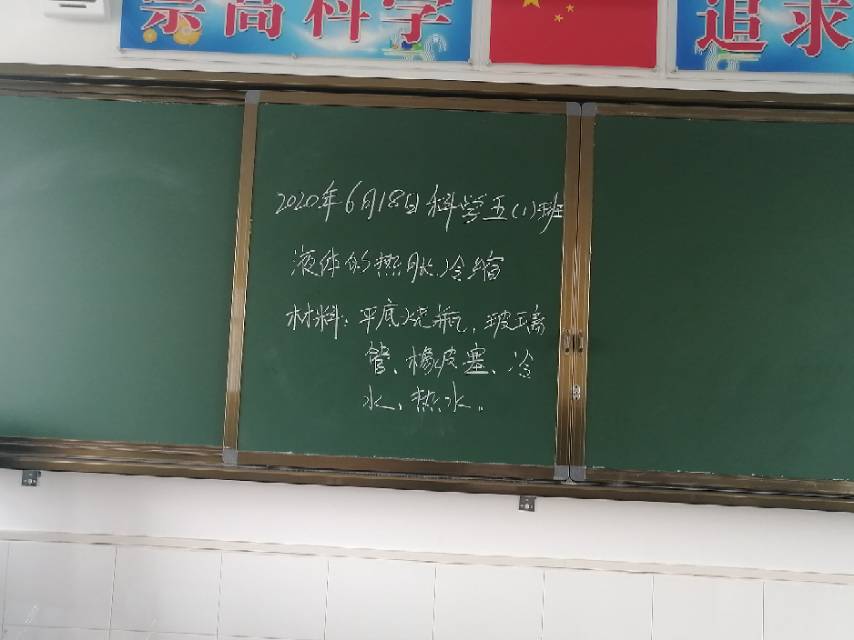 崇高科学
追求
2020年6月18日科学五(1)班
液体的热胀冷缩
材料：平底烧瓶、玻璃
管、橡皮塞、冷
水、热水。